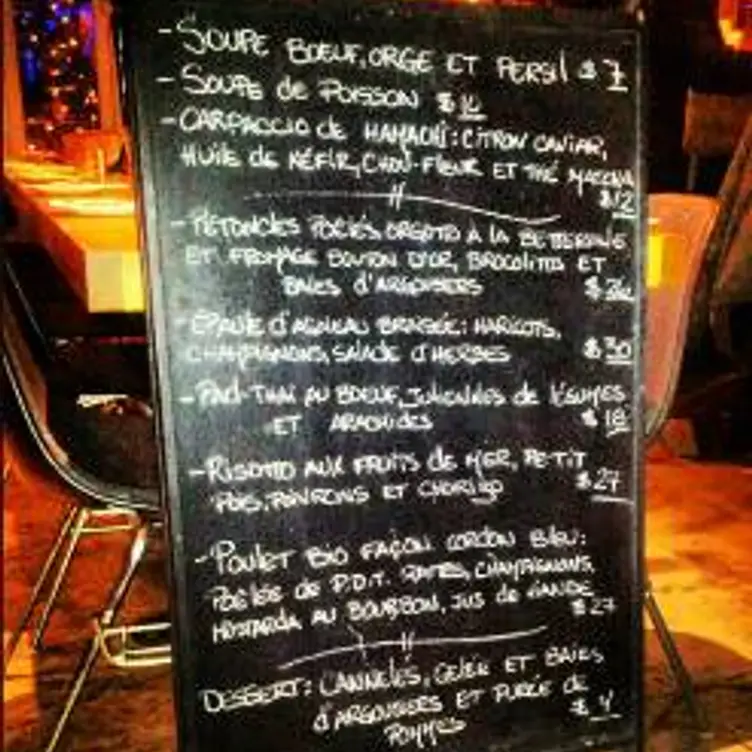 - SOUPE BOEUF, ORGE ET PERSIL $7
- SOUPE de POISSON $10
- CARPACCIO de HAMACHI: CITRON CAVIAR,
HUILE de KÉFIR, CHOU-FLEUR ET THÉ MATCHA
$12
- PÉTONCLES POÊLÉS, ORGOTTO À LA BETTERAVE
ET FROMAGE BOUTON D'OR, BROCOLINIS ET
BAIES d'ARGOUSIERS $26
- ÉPAULE d'AGNEAU BRAISÉE: HARICOTS,
CHAMPIGNONS, SALADE d'HERBES $30
- PAD-THAÏ AU BOEUF, JULIENNES de LÉGUMES
ET ARACHIDES $18
- RISOTTO AUX FRUITS de MER, PETIT
POIS, POIVRONS ET CHORIZO $27
- POULET BIO FAÇON CORDON BLEU:
POÊLÉE de P.D.T. RATTES, CHAMPIGNONS,
MOSTARDA AU BOURBON, JUS de VIANDE $27
DESSERT: CANNELÉS, GELÉE ET BAIES
d'ARGOUSIERS ET PURÉE DE
POMMES $4